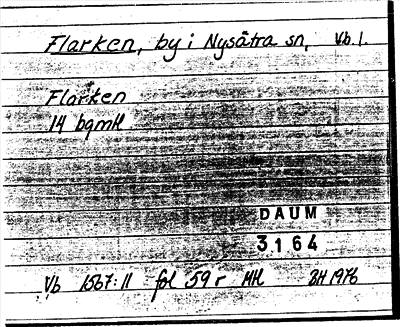 Flarken, by i Nysätra sn, Vb. l.
Flarken
14 bgmH
DAUM
3164
Vb 1567:11 fol 59 r MH BH 1976